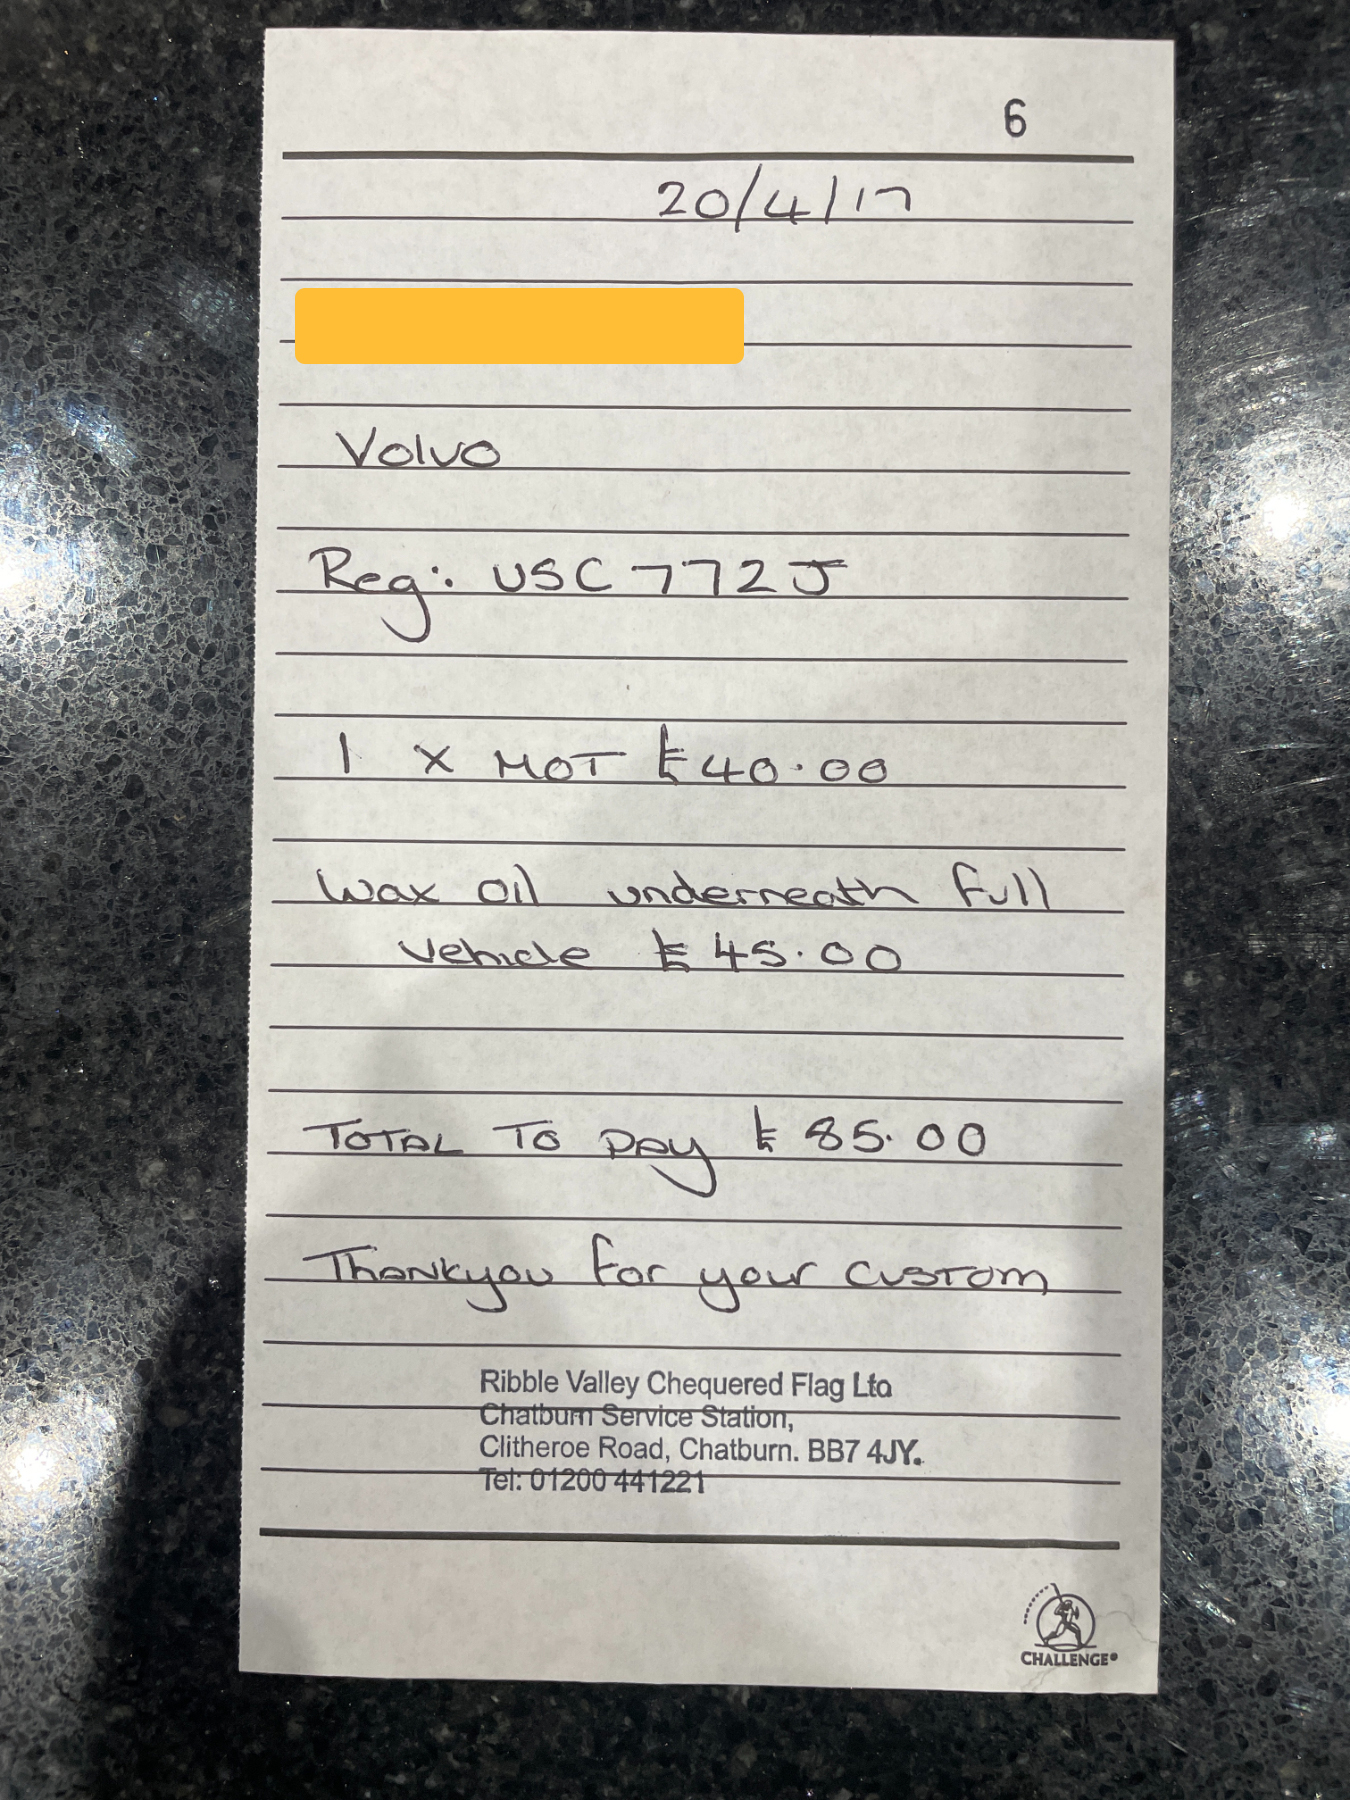 6
20/4/17
Volvo
Reg: USC 772J
1 x MOT £40.00
Wax oil underneath full
vehicle £45.00
TOTAL TO PAY £85.00
Thankyou for your custom
Ribble Valley Chequered Flag Ltd
Chatburn Service Station,
Clitheroe Road, Chatburn. BB7 4JY.
Tel: 01200 441221
CHALLENGE®